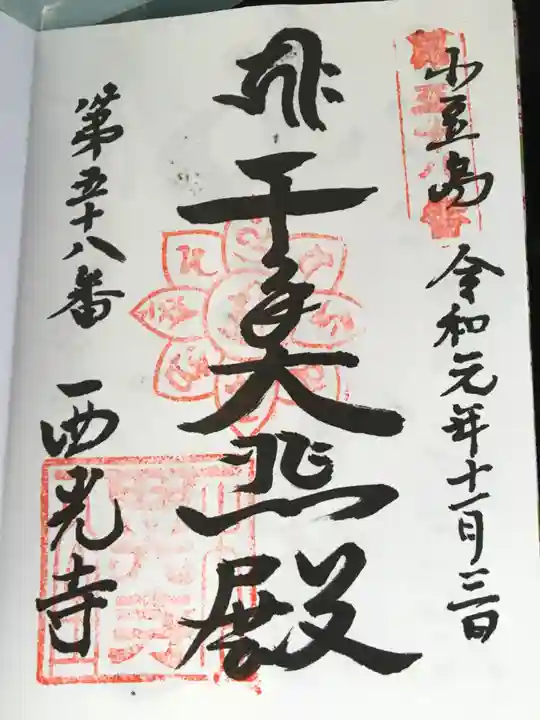 小豆島 令和元年十一月三日
千手大悲殿
第五十八番
西光寺